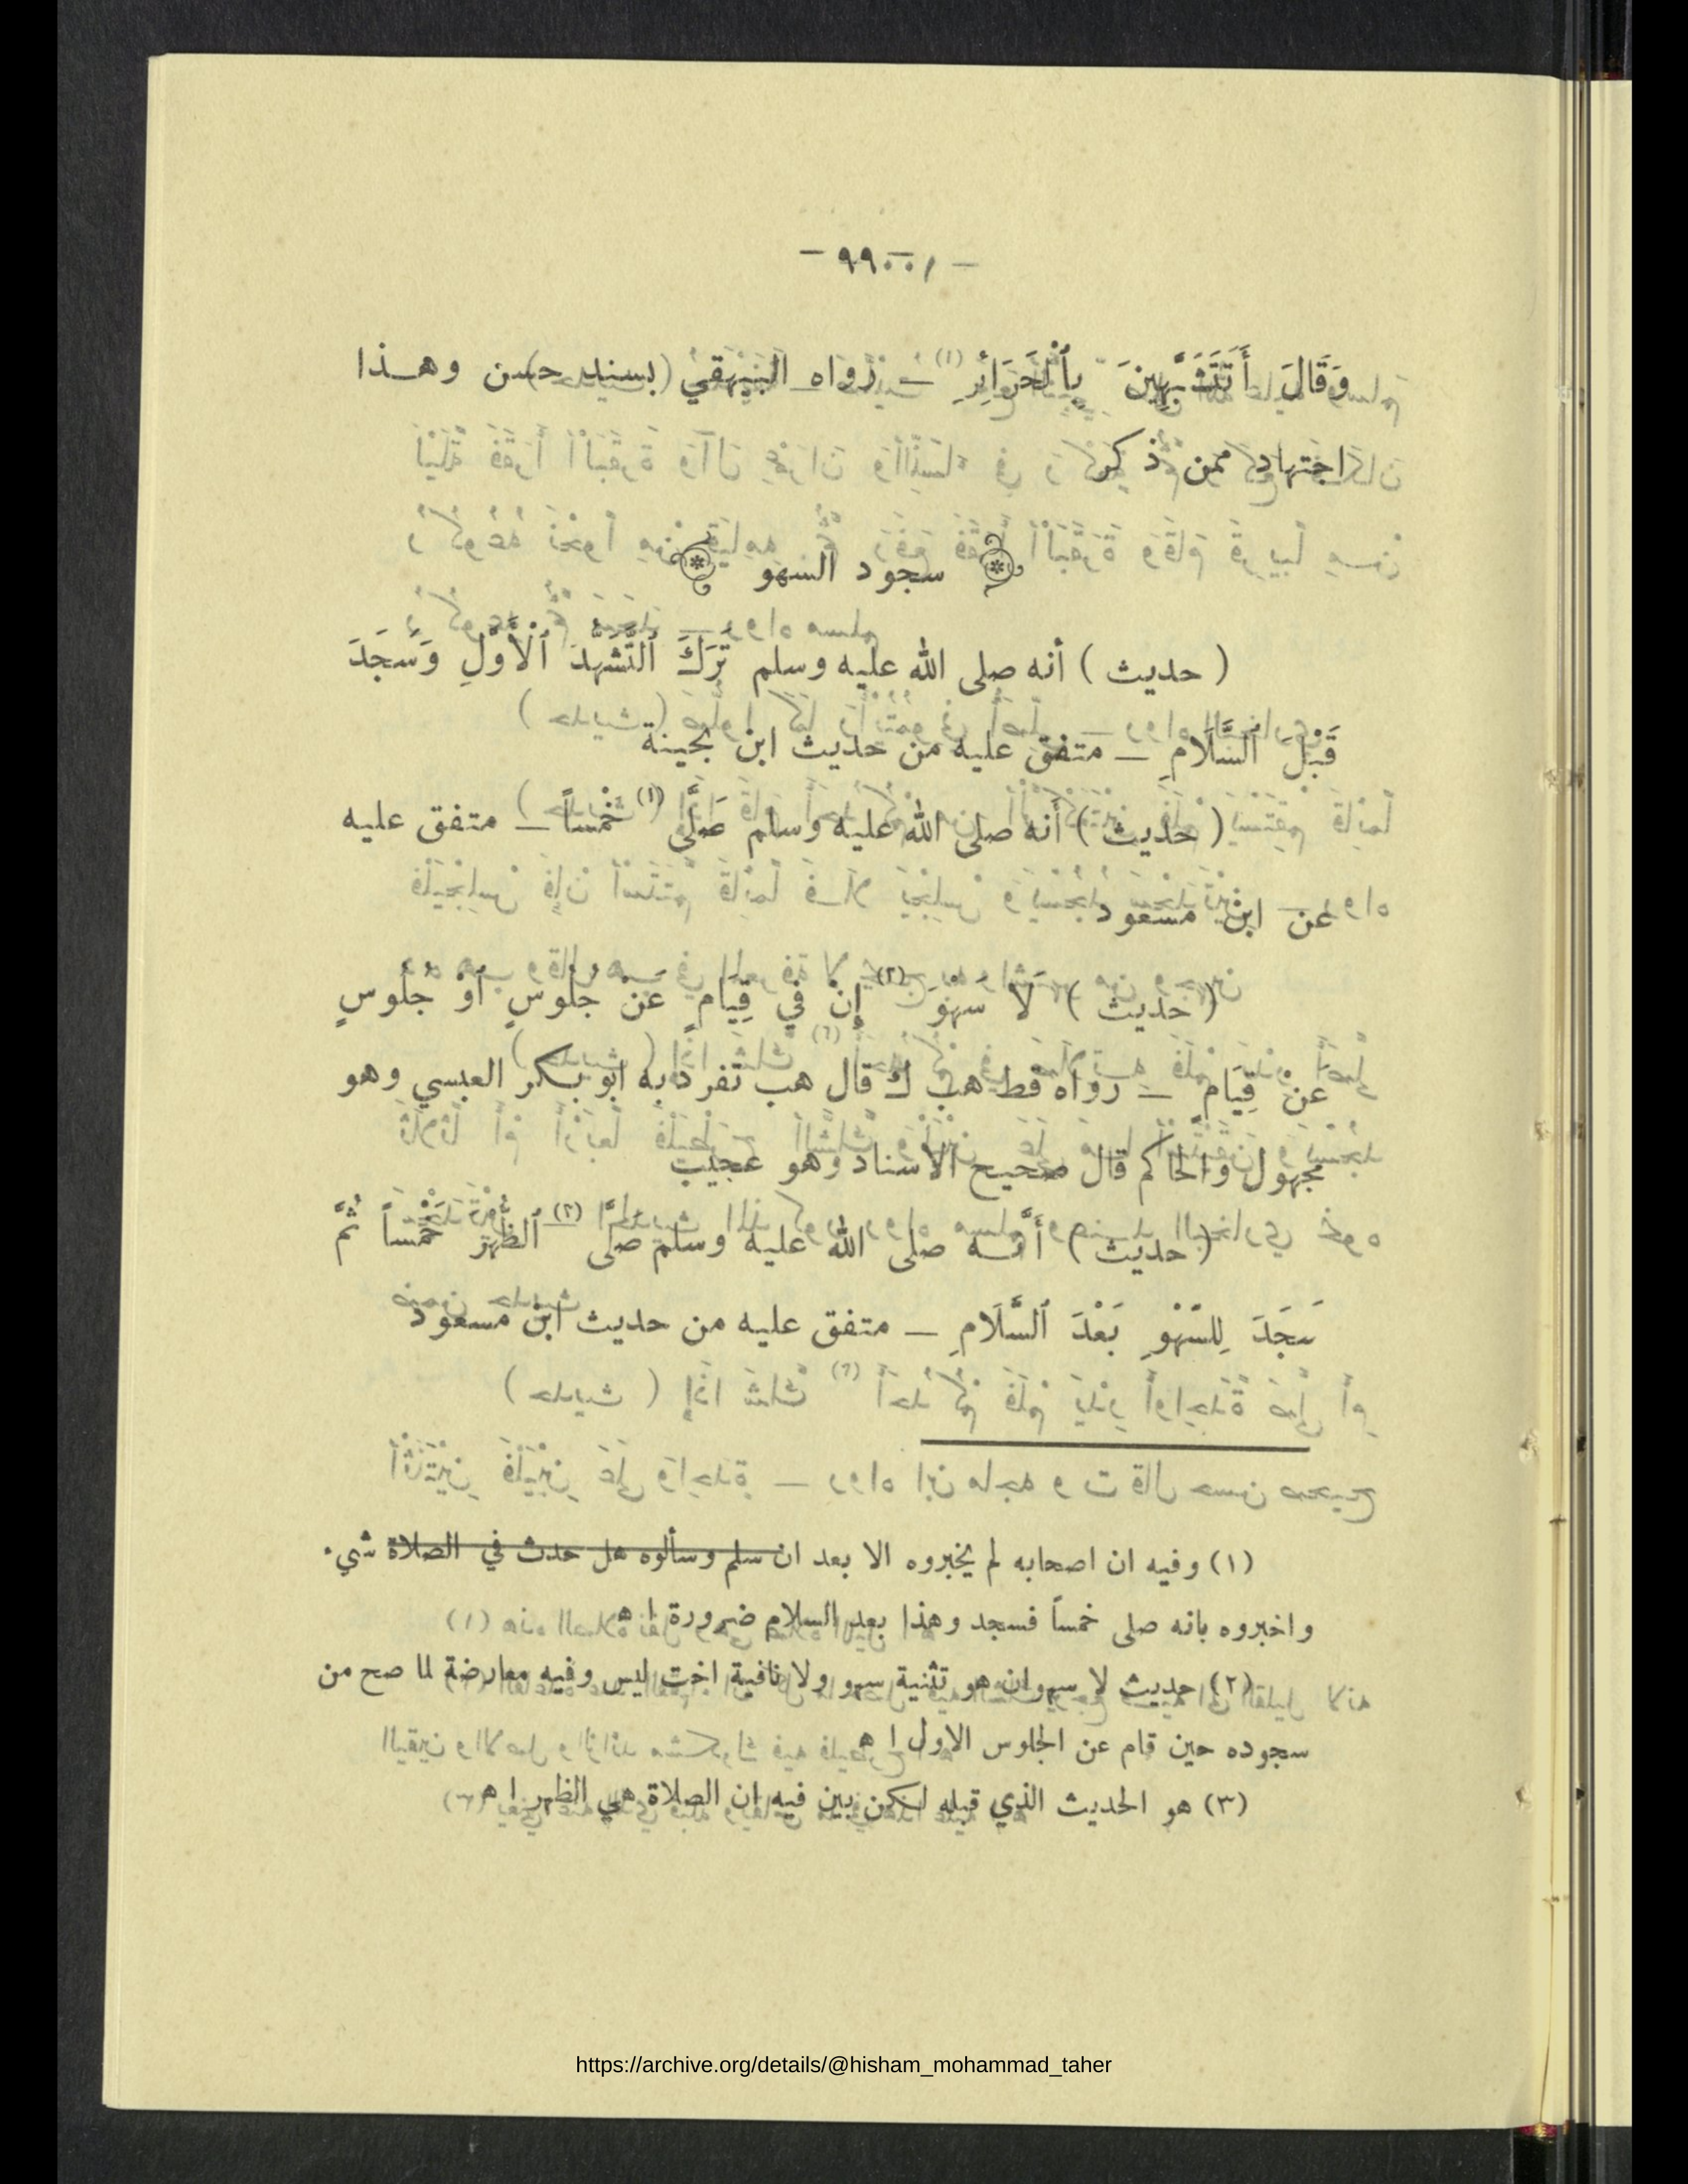 - ٩٩ -
وَقَالَ أَتَتَشَبَّهِينَ بِٱلْحَرَائِرِ ــ رواه البيهقي بسند حسن وهـذا
اجتهاد ممن ذكر
سجود السهو
( حديث ) أنه صلى الله عليه وسلم تَرَكَ ٱلتَّشَهُّدَ ٱلْأَوَّلَ وَسَجَدَ
قَبْلَ ٱلسَّلَامِ ــ متفق عليه من حديث ابن بحينة
( حديث ) أنه صلى الله عليه وسلم صَلَّى (١) خَمْساً ــ متفق عليه
عن ابن مسعود
( حديث ) لَا سَهْوَ (٢) إِنْ فِي قِيَامٍ عَنْ جُلُوسٍ أَوْ جُلُوسٍ
عَنْ قِيَامٍ ــ رواه قط هب ك قال هب تفرد به ابو بكر العبسي وهو
مجهول والحاكم قال صحيح الاسناد وهو عجيب
( حديث ) أَنَّـه صلى الله عليه وسلم صَلَّى (٣) ٱلظُّهْرَ خَمْساً ثُمَّ
سَجَدَ لِلسَّهْوِ بَعْدَ ٱلسَّلَامِ ــ متفق عليه من حديث ابن مسعود
(١) وفيه ان اصحابه لم يخبروه الا بعد ان سلم وسألوه هل حدث في الصلاة شيء
واخبروه بانه صلى خمساً فسجد وهذا بعد السلام ضرورة ا ه
(٢) حديث لا سهوان هو تثنية سهو ولا نافية اخت ليس وفيه معارضة لما صح من
سجوده حين قام عن الجلوس الاول ا ه
(٣) هو الحديث الذي قبله لكن بين فيه ان الصلاة هي الظهر ا ه
https://archive.org/details/@hisham_mohammad_taher